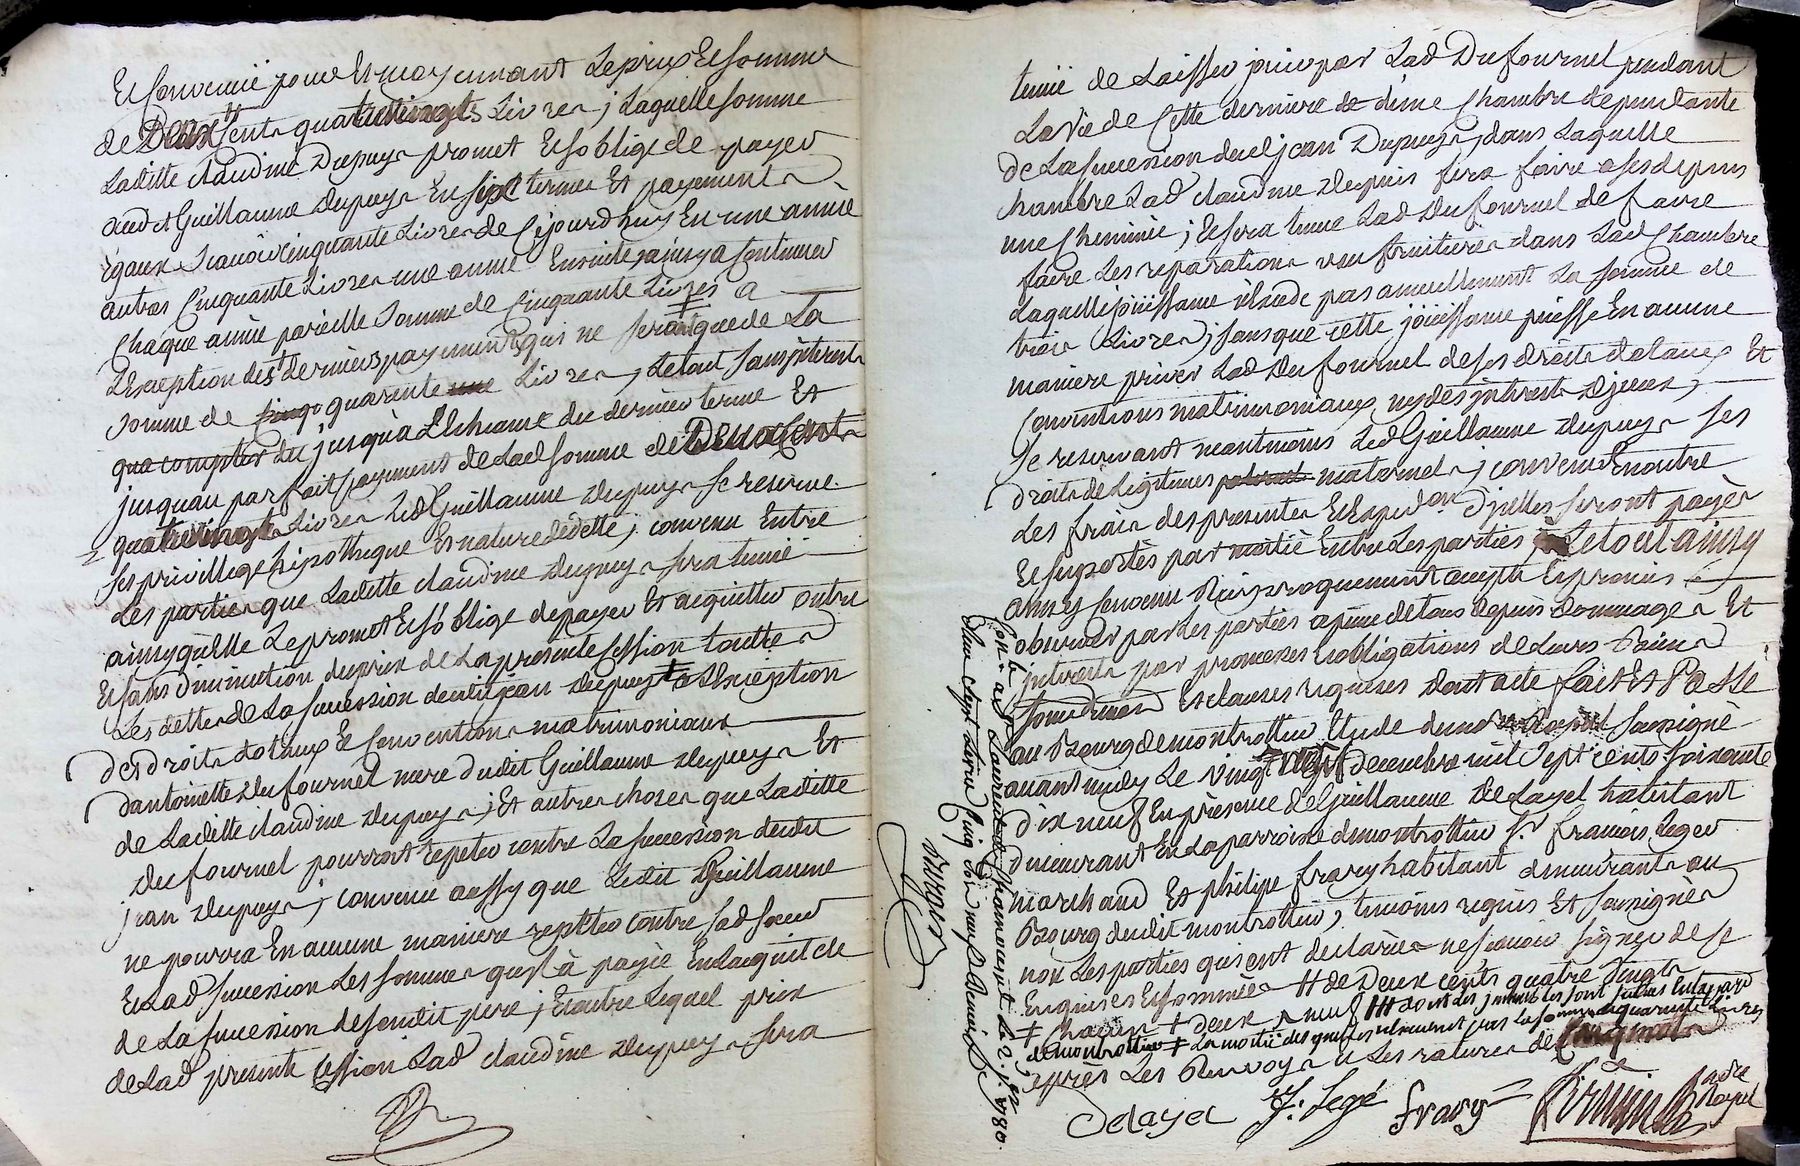 Et Convenüe pour Et moyennant Le prix Et somme
de Deux Cents quatrevingts Livres, Laquelle somme
Laditte Claudine Dupuys promet Et s'oblige de payer
aud. Guillaume Dupuys En six termes Et payements
Egaux Scavoir Cinquante Livres de Cejourdhuy En une année
autres Cinquante Livres une année Ensuite, ainsy a Continuer
Chaque année pareille Somme de Cinquante Livres a
L'Exception des derniers payements qui ne seront que de La
Somme de quarente Livres, Le tout sans jnterests
jusqu'à L'Echeance du dernier terme Et
jusqu'au parfait payement de Lad. somme de Deux Cents
quatrevingts Livres Led. Guillaume Dupuys Se reserve
Ses privillege hipotheque Et nature de dette; convenu Entre
Les parties que Laditte Claudine Dupuys sera tenüe
ainsy qu'Elle Le promet Et s'oblige de payer Et acquitter outre
Et sans diminution du prix de La presente Cession touttes
Les dettes de La succession dudit jean Dupuys a L'Exception
des droits dotaux Et Conventions matrimoniaux
d'antoinette Dufournel mere dudit Guillaume Dupuys Et
de Laditte Claudine Dupuys; Et autres choses que Laditte
Dufournel pourroit repeter contre La succession dudit
jean Dupuys; convenu aussy que Ledit Guillaume
ne pourra En aucune maniere repetter contre sad. soeur
Et Lad. succession Les sommes qu'il à payée En Lacquit de
de La succession de sondit pere; Et outre Lequel prix
de Lad. presente Cession Lad. Claudine Dupuys sera
tenüe de Laisser jouir par Lad. Dufournel pendant
La vie de Cette derniere d'une Chambre dependante
de La succession dud. jean Dupuys, dans Laquelle
chambre Lad. Claudine Dupuis fera faire a ses depens
une Cheminée; Et sera tenue Lad. Dufournel de faire
faire Les reparations usufruitieres dans Lad. Chambre
Laquelle joüissance n'Excede pas annuellement La somme de
trois Livres; sans que cette joüissance puisse En aucune
maniere priver Lad. Dufournel de ses droits dotaux Et
Conventions matrimoniaux, ny des jnterests d'jceux;
Se reservant neantmoins Led. Guillaume Dupuys Ses
droits de Legitimes maternels; convenu Enoutre
Les frais des presentes Et Expedon d'jcelles seront payés
Et suportés par moitié Entre Les parties Le tout ainsy
Convenu Reciproquement accepté Et promis
observer par Les parties a peine de tous depens dommages Et
jnterests par promesses obligations de Leurs Biens
Soumissions Et clauses requises Dont acte fait Et Passé
au Bourg de montrottier Etude du Soussigné
avant midy Le vingt decembre mil Sept cents Soixante
dix neuf En présence de Guillaume Delayel habitant
demeurant En La parroisse de montrottier Sr. francois Leger
marchand Et philipe frary habitant demeurants au
Bourg dudit montrottier, temoins requis Et Soussignés
non Les parties qui ont declarées ne scavoir signer de ce
Enquises Et sommées # de Deux cents quatre vingts
‡ Chacun ‡ deux neuf
de montrottier ‡ La moitié
apprès Les Renvoys Et Les ratures
Delayel J. Legé frary
Nore Royal
Con.lé a Le 2. 1780.